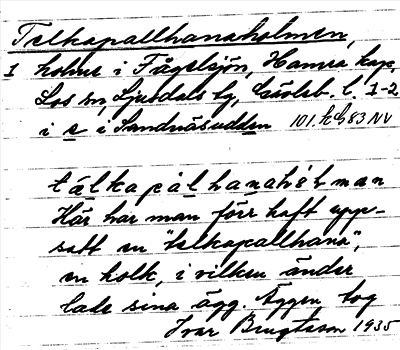 Telkapallhanaholmen,
1 holme i Fågelsjön, Hamra kap.
Los sn, Ljusdals tg, Gävleb. l. 1-2
i s i Sandnäsudden 101. 83 NV
tälkapálhanahólman
Här har man förr haft upp-
satt en "telkapallhana",
en holk, i vilken änder
lade sina ägg. Äggen tog
Ivar Bengtsson 1935